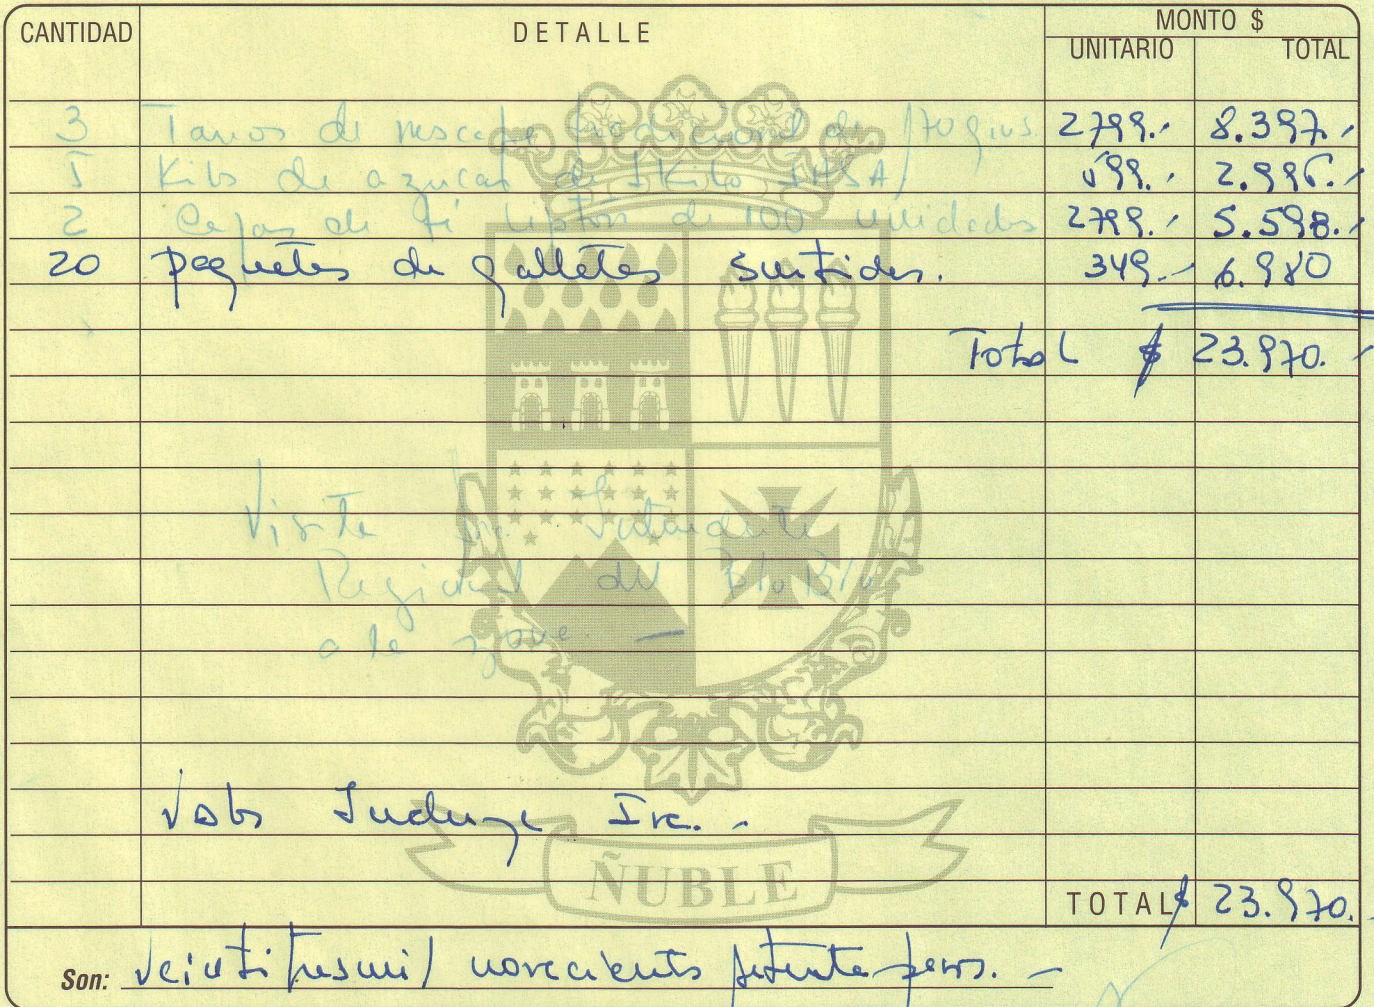 CANTIDAD DETALLE MONTO $
UNITARIO TOTAL
3 Tarros de nescafe tradicional de 170 grs. 2799.- 8.397.-
5 Kilos de azucar de 1 Kilo IANSA 599.- 2.995.-
2 Cajas de té Lipton de 100 unidades 2799.- 5.598.-
20 paquetes de galletas surtidas. 349.- 6.980
Total $ 23.970.-
Visita Sr. Intendente
Regional del Bío Bío
a la zona. -
Valor Incluye Iva. -
ÑUBLE
TOTAL $ 23.970.
Son: Veintitresmil novecientos setenta pesos. -